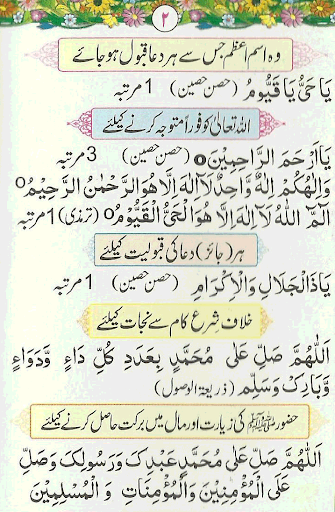 ۲
وہ اسم اعظم جس سے ہر دعا قبول ہو جائے
يَا حَيُّ يَا قَيُّومُ (حصن حصین) 1 مرتبہ
اللہ تعالیٰ کو فوراً متوجہ کرنے کیلئے
يَا اَرْحَمَ الرَّاحِمِيْنَ o (حصن حصین) 3 مرتبہ
وَاِلٰهُكُمْ اِلٰهٌ وَّاحِدٌ لَآ اِلٰهَ اِلَّا هُوَ الرَّحْمٰنُ الرَّحِيْمُ o
الٓمّٓ اللّٰهُ لَآ اِلٰهَ اِلَّا هُوَ الْحَيُّ الْقَيُّوْمُ o (ترمذی) 1 مرتبہ
ہر (جائز) دعا کی قبولیت کیلئے
يَا ذَالْجَلَالِ وَالْاِكْرَامِ (حصن حصین) 1 مرتبہ
خلاف شرع کام سے نجات کیلئے
اَللّٰهُمَّ صَلِّ عَلٰى مُحَمَّدٍ بِعَدَدِ كُلِّ دَاءٍ وَّدَوَاءٍ
وَّبَارِكْ وَسَلِّمْ (ذریعۃ الوصول)
حضور ﷺ کی زیارت اور مال میں برکت حاصل کرنے کیلئے
اَللّٰهُمَّ صَلِّ عَلٰى مُحَمَّدٍ عَبْدِكَ وَرَسُوْلِكَ وَصَلِّ
عَلَى الْمُؤْمِنِيْنَ وَالْمُؤْمِنَاتِ وَالْمُسْلِمِيْنَ